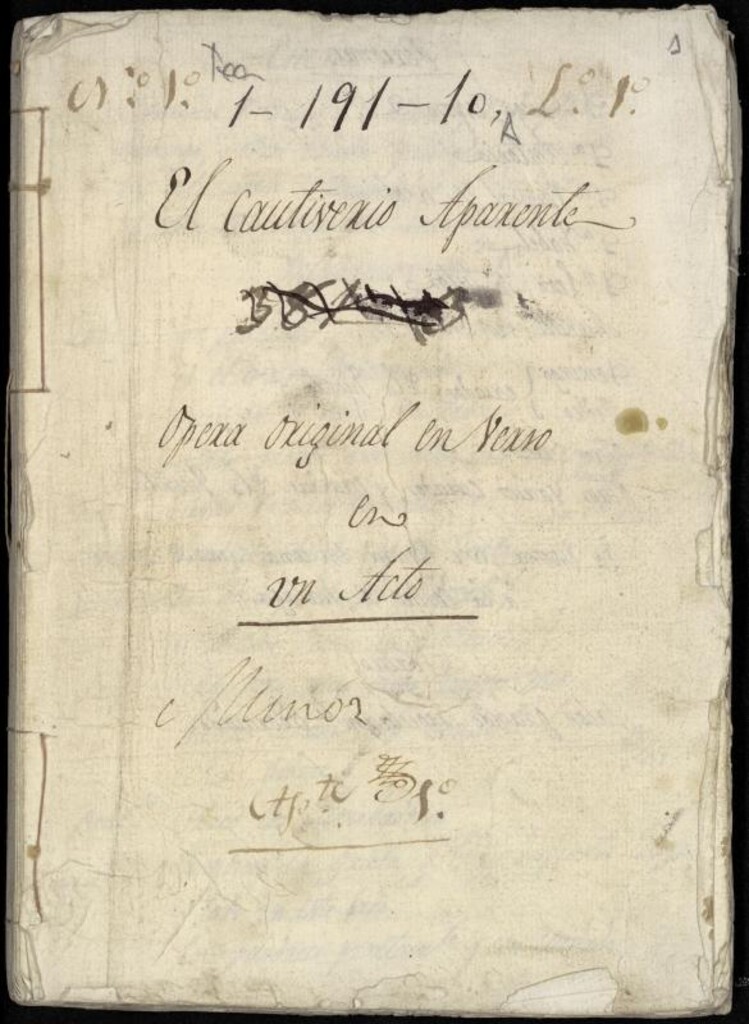 1
Nº 1º. Tea 1-191-10, A Lº. 1º.
El Cautiverio Aparente
Opera original en Verso
en
un Acto
Munoz
Aptº 1º